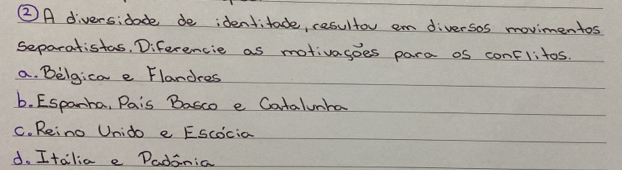 ② A diversidade de identitade, resultou em diversos movimentos
separatistas. Diferencie as motivações para os conflitos.
a. Bélgica e Flandres
b. Espanha, País Basco e Catalunha
c. Reino Unido e Escócia
d. Itália e Padânia